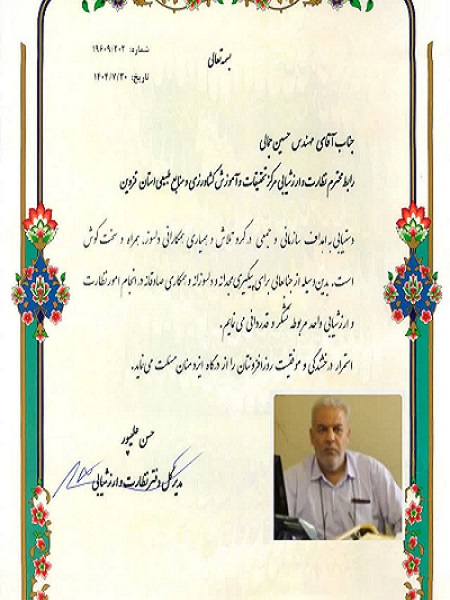 بسمه تعالی
شماره: ۱۹۶۰۹/۲۰۲
تاریخ: ۱۴۰۲/۷/۳۰
جناب آقای مهندس حسین جمالی
رابط محترم نظارت و ارزشیابی مرکز تحقیقات و آموزش کشاورزی و منابع طبیعی استان قزوین
دستیابی به اهداف سازمانی و جمعی درگرو تلاش و همیاری همکارانی دلسوز، همراه و سخت کوش
است. بدین وسیله از جنابعالی برای پیگیری مجدانه و دلسوزانه و همکاری صادقانه در انجام امور نظارت
و ارزشیابی واحد مربوطه تشکر و قدردانی می نمایم.
استمرار درخشندگی و موفقیت روزافزونتان را از درگاه ایزد منان مسئلت می نماید.
حسن علیپور
مدیرکل دفتر نظارت و ارزشیابی